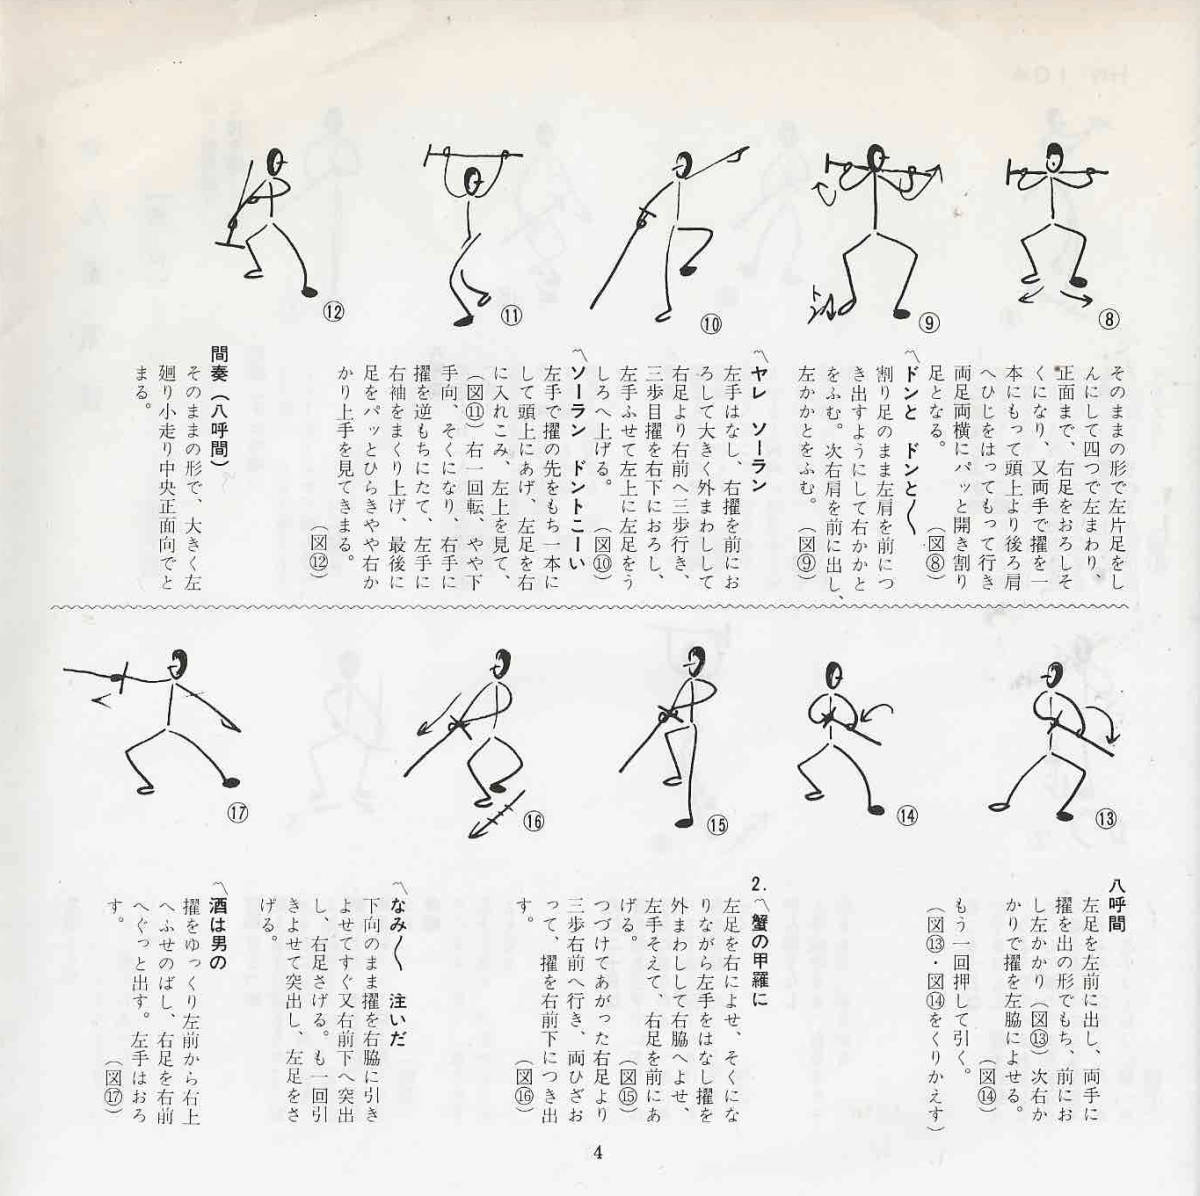 ⑧
⑨
⑩
⑪
⑫
そのままの形で左片足をし
んにして四つで左まわり、
正面まで、右足をおろしそ
くになり、又両手で擢を一
本にもって頭上より後ろ肩
へひじをはってもって行き
両足両横にパッと開き割り
足となる。
（図⑧）
〽ドンと　ドンと〱
割り足のまま左肩を前につ
き出すようにして右かかと
をふむ。次右肩を前に出し、
左かかとをふむ。
（図⑨）
〽ヤレ　ソーラン
左手はなし、右擢を前にお
ろして大きく外まわしして
右足より右前へ三歩行き、
三歩目擢を右下におろし、
左手ふせて左上に左足をう
しろへ上げる。
（図⑩）
〽ソーラン　ドントこーい
左手で擢の先をもち一本に
して頭上にあげ、左足を右
に入れこみ、左上を見て、
（図⑪）右一回転、やや下
手向、そくになり、右手に
擢を逆もちにたて、左手に
右袖をまくり上げ、最後に
足をパッとひらきやや右か
かり上手を見てきまる。
（図⑫）
間奏（八呼間）
そのままの形で、大きく左
廻り小走り中央正面向でと
まる。
⑬
⑭
⑮
⑯
⑰
八呼間
左足を左前に出し、両手に
擢を出の形でもち、前にお
し左かかり（図⑬）次右か
かりで擢を左脇によせる。
（図⑭）
もう一回押して引く。
（図⑬・図⑭をくりかえす）
2.〽蟹の甲羅に
左足を右によせ、そくにな
りながら左手をはなし擢を
外まわしして右脇へよせ、
左手そえて、右足を前にあ
げる。
（図⑮）
つづけてあがった右足より
三歩右前へ行き、両ひざお
って、擢を右前下につき出
す。
（図⑯）
〽なみ〱　注いだ
下向のまま擢を右脇に引き
よせてすぐ又右前下へ突出
し、右足さげる。も一回引
きよせて突出し、左足をさ
げる。
〽酒は男の
擢をゆっくり左前から右上
へふせのばし、右足を右前
へぐっと出す。左手はおろ
す。
（図⑰）
4